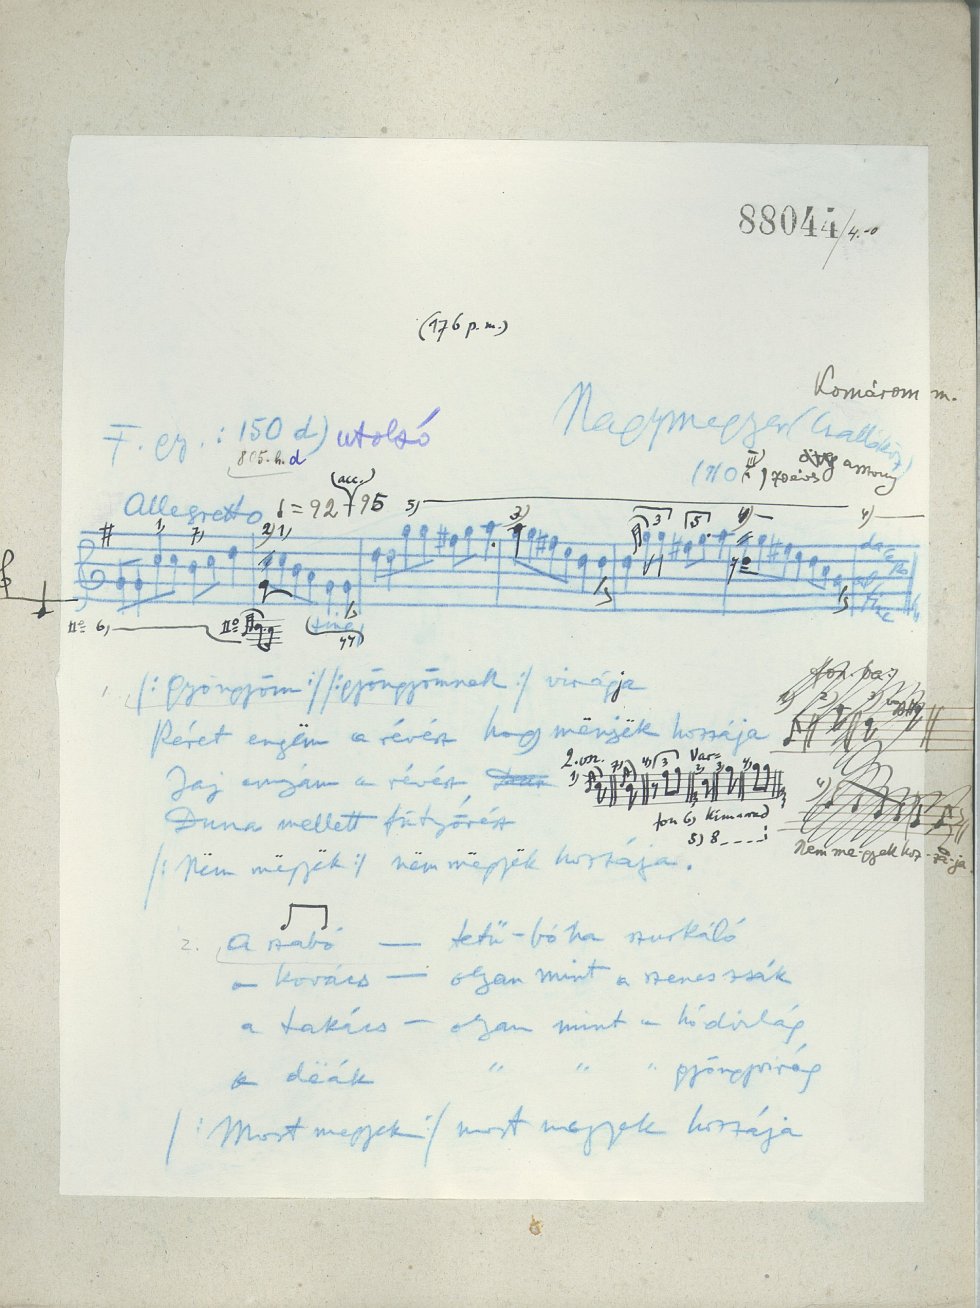 88044/4.-0
(176 p.m.)
Komárom m.
F. gr. : 150 d) utolsó
Nagymegyer (Csallóköz)
805. h. d
(acc.)
70 éves
asszony
Allegretto = 92 - 95
5) 3) 3 5 4)
1) 7) 2) 1)
da
Fine
II° 6) II°
(Fine)
/: Gyöngyöm :/ /: gyöngyömnek :/ virágja
Kéret engëm a révész hogy mënjëk hozzája
Jaj anyám a révész
Duna mellett fütyörész
/: Nëm mëgyëk :/ nëm mëgyëk hozzája.
2. vsz. Var.
1) 7) 4) 3 2) 3) 4)
6) kimarad
5) 8
1) 2) 3)
4)
Nem me-gyek hoz-zá-ja.
2. a szabó — tetű-bóha szurkáló
a kovács — olyan mint a szeneszsák
a takács — olyan mint a hódvilág
a dëák " " " gyöngyvirág
/: Most megyek :/ most megyek hozzája